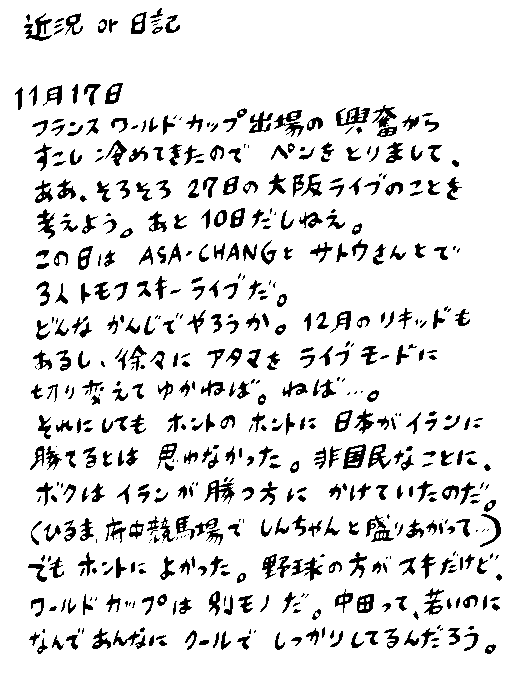 近況 or 日記
11月17日
フランス ワールドカップ出場の 興奮から
すこし 冷めてきたので ペンをとりまして、
ああ、そろそろ 27日の大阪ライブのことを
考えよう。あと 10日だしねえ。
この日は ASA-CHANGと サトウさんとで
3人トモフスキーライブだ。
どんな かんじでやろうか。12月のリキッドも
あるし、徐々に アタマを ライブモードに
切り変えて ゆかねば。ねば…。
それにしても ホントの ホントに 日本がイランに
勝てるとは 思わなかった。非国民なことに、
ボクは イランが 勝つ方に かけていたのだ。
(ひるま、府中競馬場で しんちゃんと盛りあがって…)
でも ホントに よかった。野球の方が スキだけど、
ワールドカップは 別モノだ。中田って、若いのに
なんで あんなに クールで しっかりしてるんだろう。